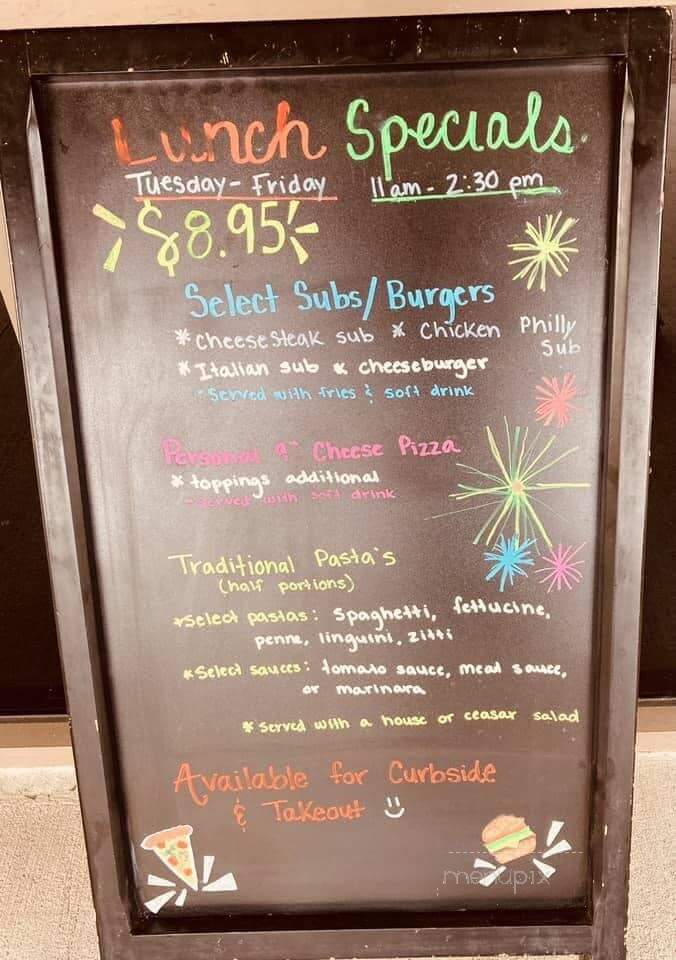 Lunch Specials
Tuesday - Friday 11am - 2:30 pm
$8.95
Select Subs/Burgers
* Cheese Steak sub * Chicken Philly Sub
* Italian sub & cheeseburger
- Served with fries & soft drink
Personal 9" Cheese Pizza
* toppings additional
- served with soft drink
Traditional Pasta's
(half portions)
*Select pastas: Spaghetti, fettucine,
penne, linguini, zitti
*Select sauces: tomato sauce, meat sauce,
or marinara
* Served with a house or ceasar salad
Available for Curbside
& Takeout
menupix